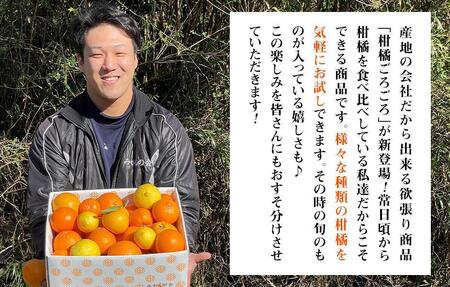 産地の会社だから出来る欲張り商品
「柑橘ごろごろ」が新登場！常日頃から
柑橘を食べ比べしている私達だからこそ
できる商品です。様々な種類の柑橘を
気軽にお試しできます。その時の旬のも
のが入っている嬉しさも♪
この楽しみを皆さんにもおすそ分けさせ
ていただきます！